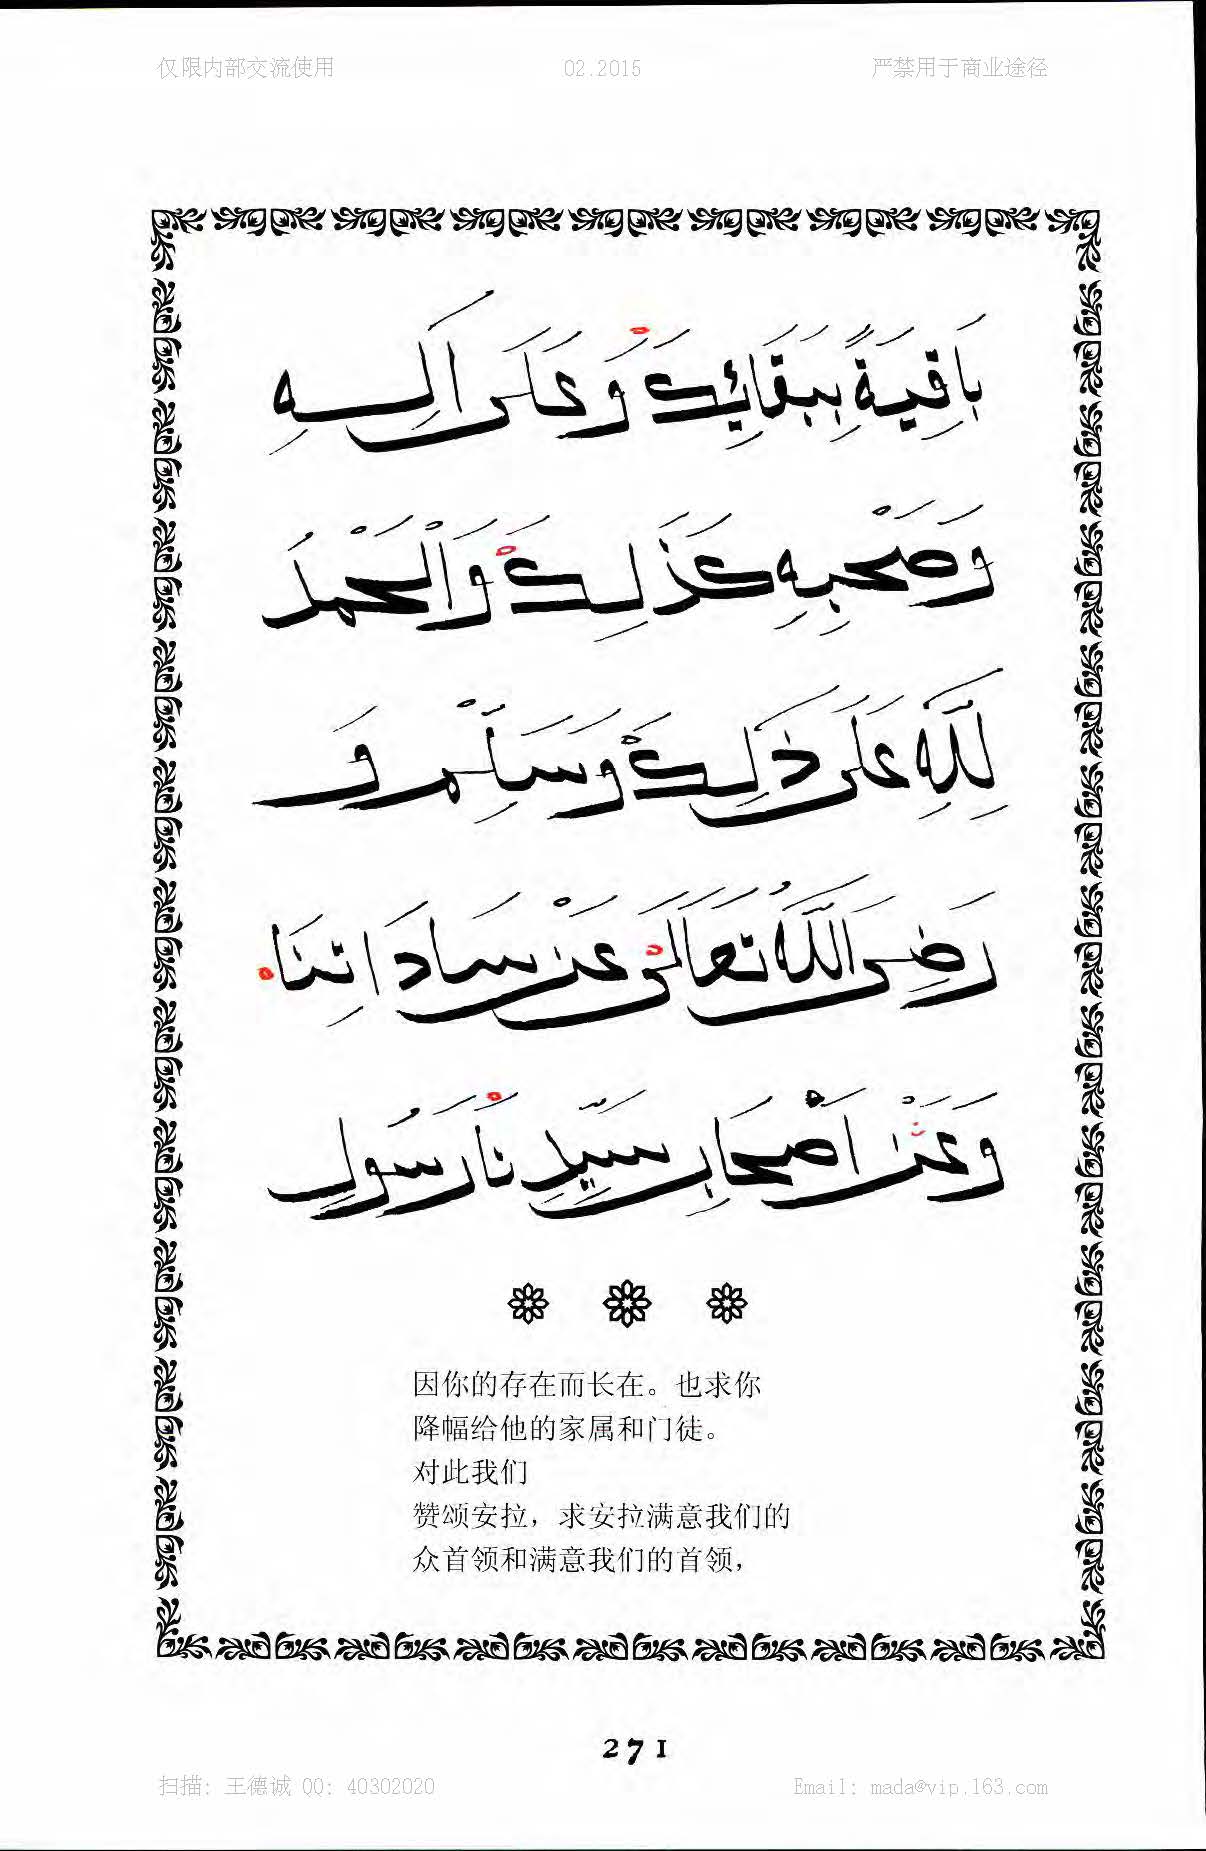 仅限内部交流使用 02.2015 严禁用于商业途径
بَاقِيَةً بِبَقَائِكَ وَعَلَى اٰلِهِ
وَصَحْبِهِ كَذَلِكَ وَالْحَمْدُ
لِلَّهِ عَلَى ذَلِكَ وَسَلِّمْ وَ
رَضِىَ اللَّهُ تَعَالَى عَنْ سَادَاتِنَا
وَعَنْ اَصْحَابِ سَيِّدِنَا رَسُولِ
因你的存在而长在。也求你
降幅给他的家属和门徒。
对此我们
赞颂安拉，求安拉满意我们的
众首领和满意我们的首领，
271
扫描：王德诚 QQ：40302020 Email：mada@vip.163.com